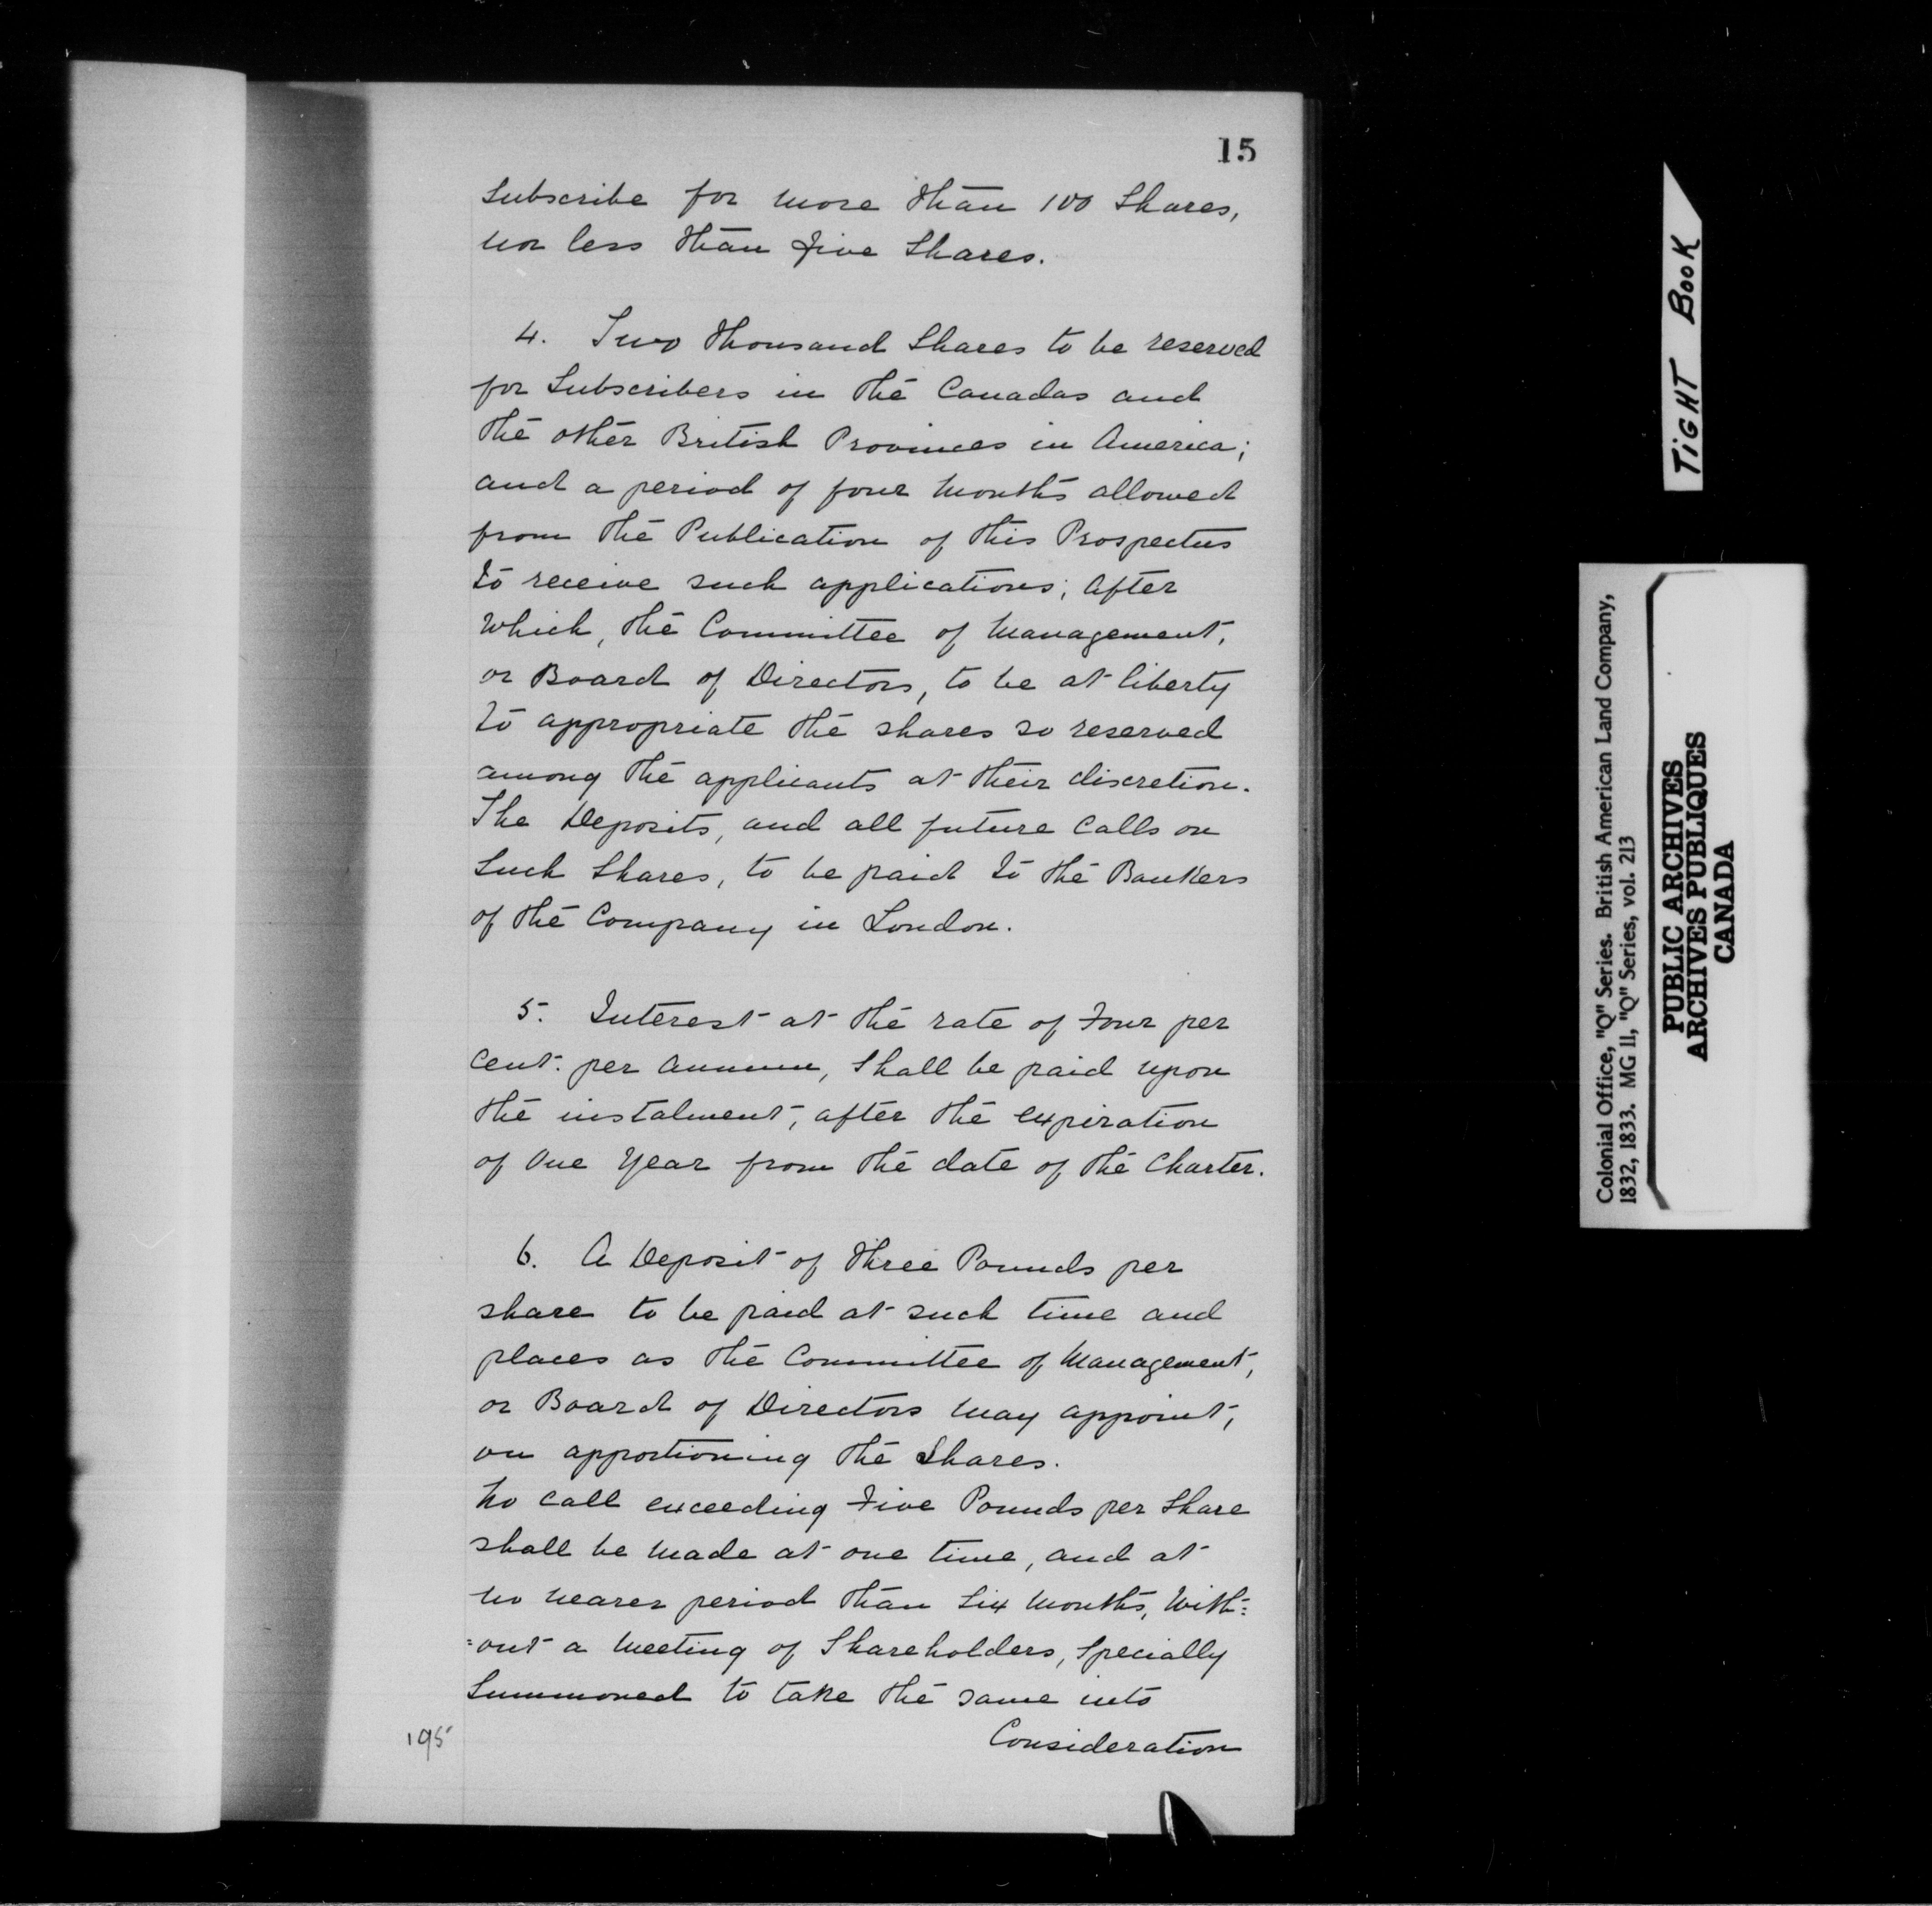 15
Subscribe for more than 100 Shares,
nor less than Five Shares.
4. Two Thousand Shares to be reserved
for Subscribers in the Canadas and
the other British Provinces in America;
and a period of four Months allowed
from the Publication of this Prospectus
to receive such applications; after
which, the Committee of Management,
or Board of Directors, to be at liberty
to appropriate the shares so reserved
among the applicants at their discretion.
The Deposits, and all future Calls on
Such Shares, to be paid to the Bankers
of the Company in London.
5. Interest at the rate of Four per
Cent. per Annum, Shall be paid upon
the instalment, after the expiration
of One Year from the date of the Charter.
6. A Deposit of Three Pounds per
share to be paid at such time and
places as the Committee of Management,
or Board of Directors may appoint,
on apportioning the Shares.
No call exceeding Five Pounds per Share
shall be made at one time, and at
no nearer period than Six Months, With=
=out a Meeting of Shareholders, Specially
Summoned to take the same into
Consideration
195
TIGHT BOOK
Colonial Office, "Q" Series. British American Land Company,
1832, 1833. MG 11, "Q" Series, vol. 213
PUBLIC ARCHIVES
ARCHIVES PUBLIQUES
CANADA